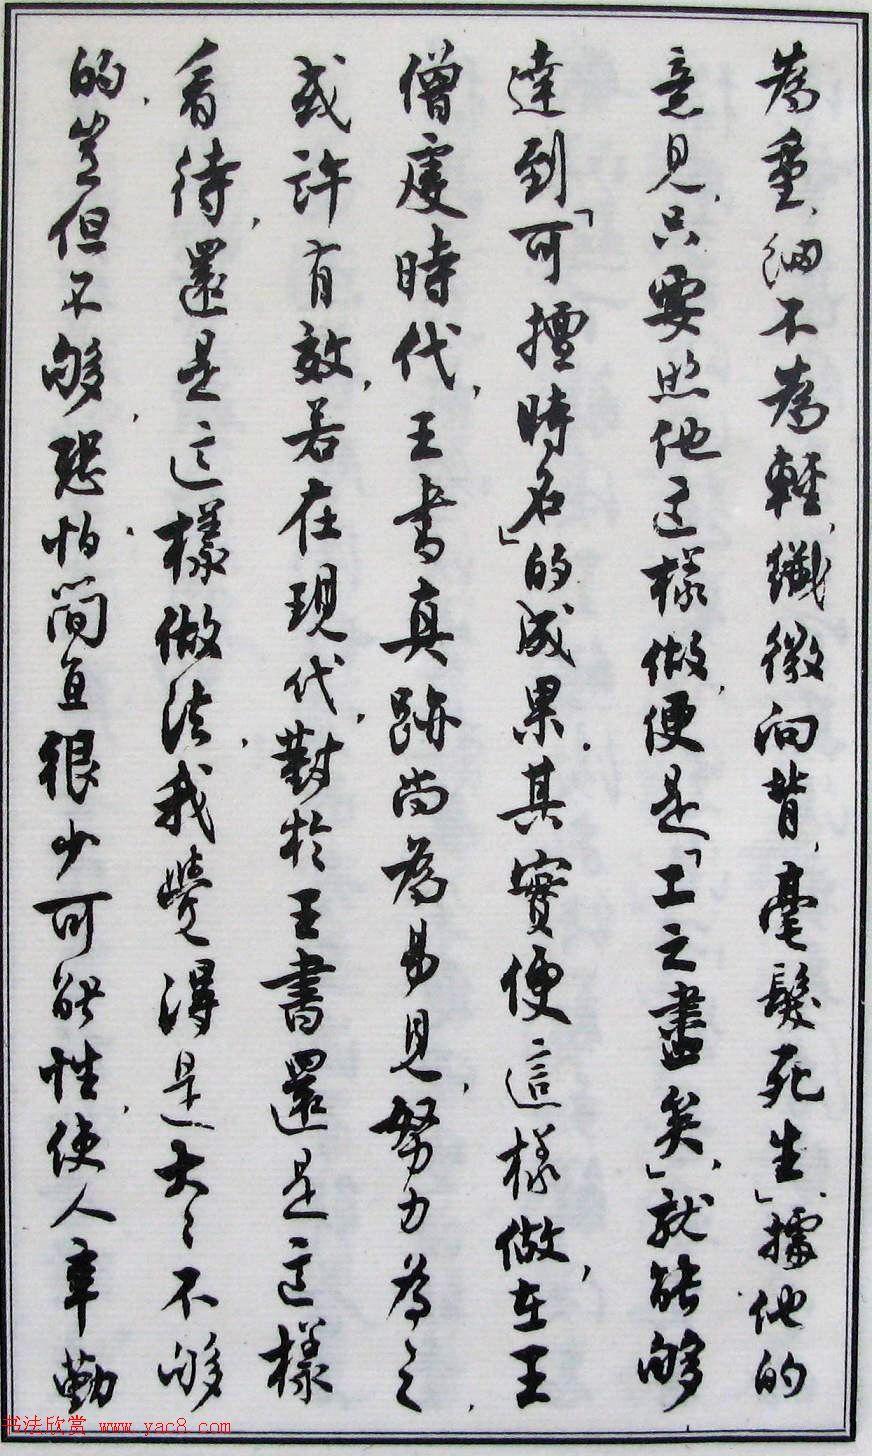 為重,細不為輕,纖微向背,毫髮死生」,據他的
意見,只要照他這樣做,便是「工之盡矣」,就能夠
達到「可擅時名」的成果.其實便這樣做,在王
僧虔時代,王書真跡尚為易見,努力為之,
或許有效,若在現代,對於王書還是這樣
看待,還是這樣做法,我覺得是大大不夠
的,豈但不夠,恐怕簡直很少可能性,使人辛勤
书法欣赏 www.yac8.com